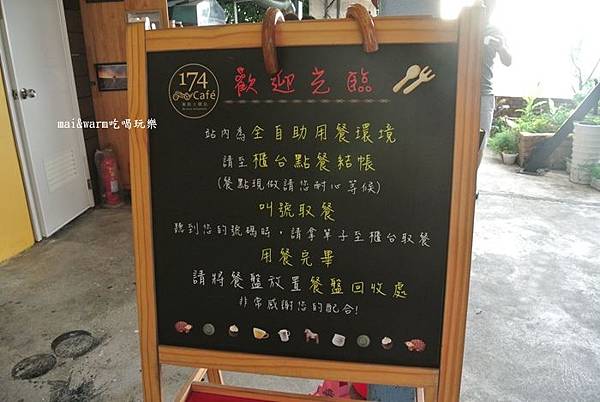 174
Café
歡迎光臨
mai&warm吃喝玩樂
站內為全自助用餐環境
請至櫃台點餐結帳
(餐點現做請您耐心等候)
叫號取餐
聽到您的號碼時，請拿單子至櫃台取餐
用餐完畢
請將餐盤放置餐盤回收處
非常感謝您的配合!